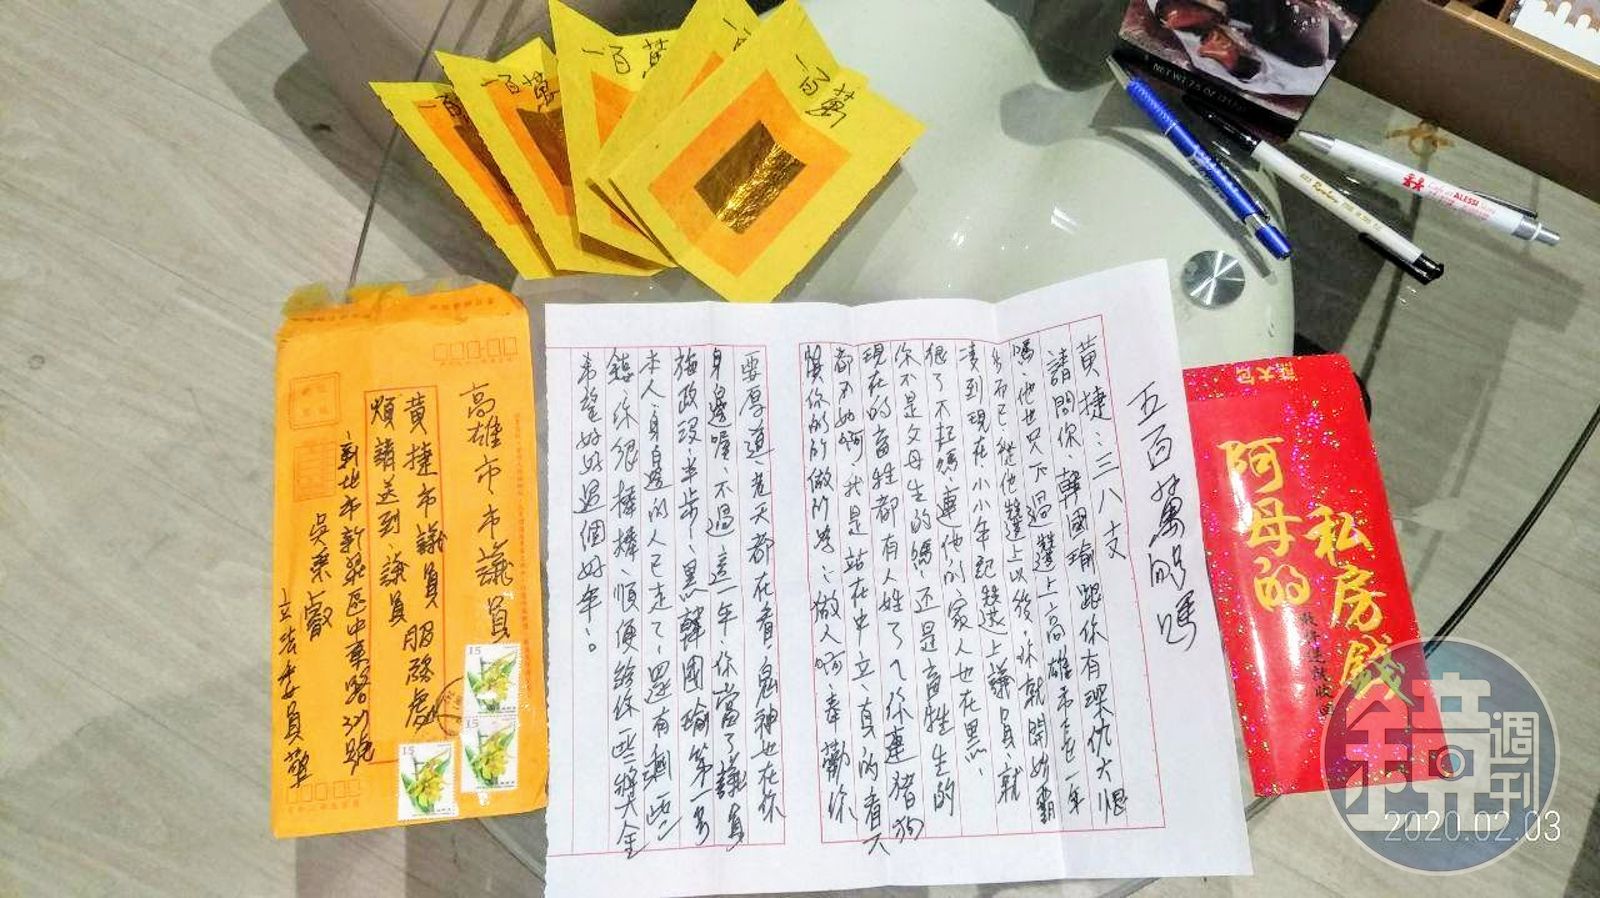 一百萬
一百萬
一百萬
一百萬
NET WT 7.5 OZ
ALESSI
高雄市市議員
黃捷市議員服務處
煩請送到議員
新北市新莊區中東路
吳秉叡
立法委員
15
15
15
五百萬的嗎
黃捷：三八支
請問你、韓國瑜跟你有深仇大恨
嗎、他也只不過選上高雄市長一年
多而已、從他選上以後、你就開始霸
凌到現在、小小年記選上議員就
很了不起嗎、連他的家人也在黑、
你不是父母生的嗎、还是畜牲生的
現在的畜牲都有人姓了、你連豬狗
都不如啊、我是站在中立、真的看不
慣你的所做所為：做人啊奉勸你
要厚道、老天都在看、鬼神也在你
身邊喔、不過這一年你當了議員
施政没半步、黑韓國瑜第一名
本人身邊的人已走了、還有剩一些
錢、你很棒棒、順便給你一些獎金
希望好好過個好年。
阿母的
私房錢
鏡週刊
2020.02.03